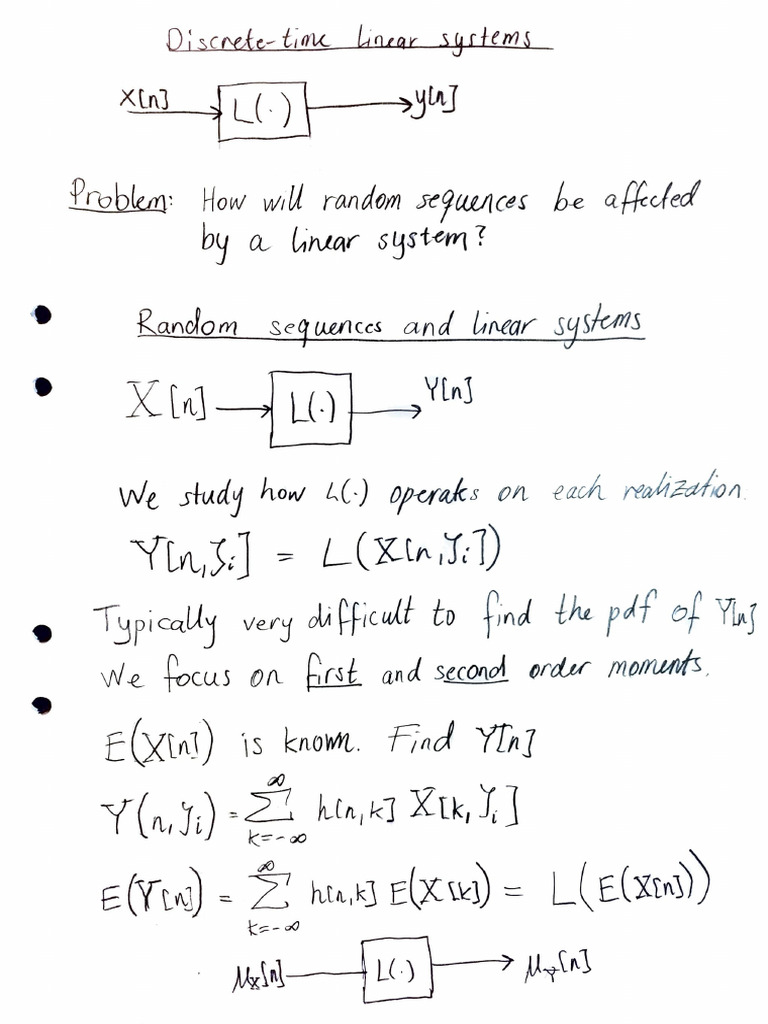 Discrete-time linear systems
X[n] L(·) y[n]
Problem: How will random sequences be affected
by a linear system?
Random sequences and linear systems
X[n] L(·) Y[n]
We study how L(·) operates on each realization.
Y[n,ζi] = L(X[n,ζi])
Typically very difficult to find the pdf of Y[n]
We focus on first and second order moments.
E(X[n]) is known. Find Y[n]
Y(n,ζi) = ∑_{k=-∞}^{∞} h[n,k] X[k,ζi]
E(Y[n]) = ∑_{k=-∞}^{∞} h[n,k] E(X[k]) = L(E(X[n]))
μ_X[n] L(·) μ_Y[n]